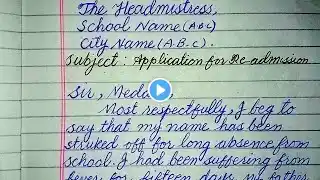 The Headmistress,
School Name (A B C)
City Name (A.B.C).
Subject: Application for Re-admission
Sir, Meda
Most respectfully, I beg to
say that my name has been
struked off for long absence from
school. I had been suffering from
fever for fifteen days. my father